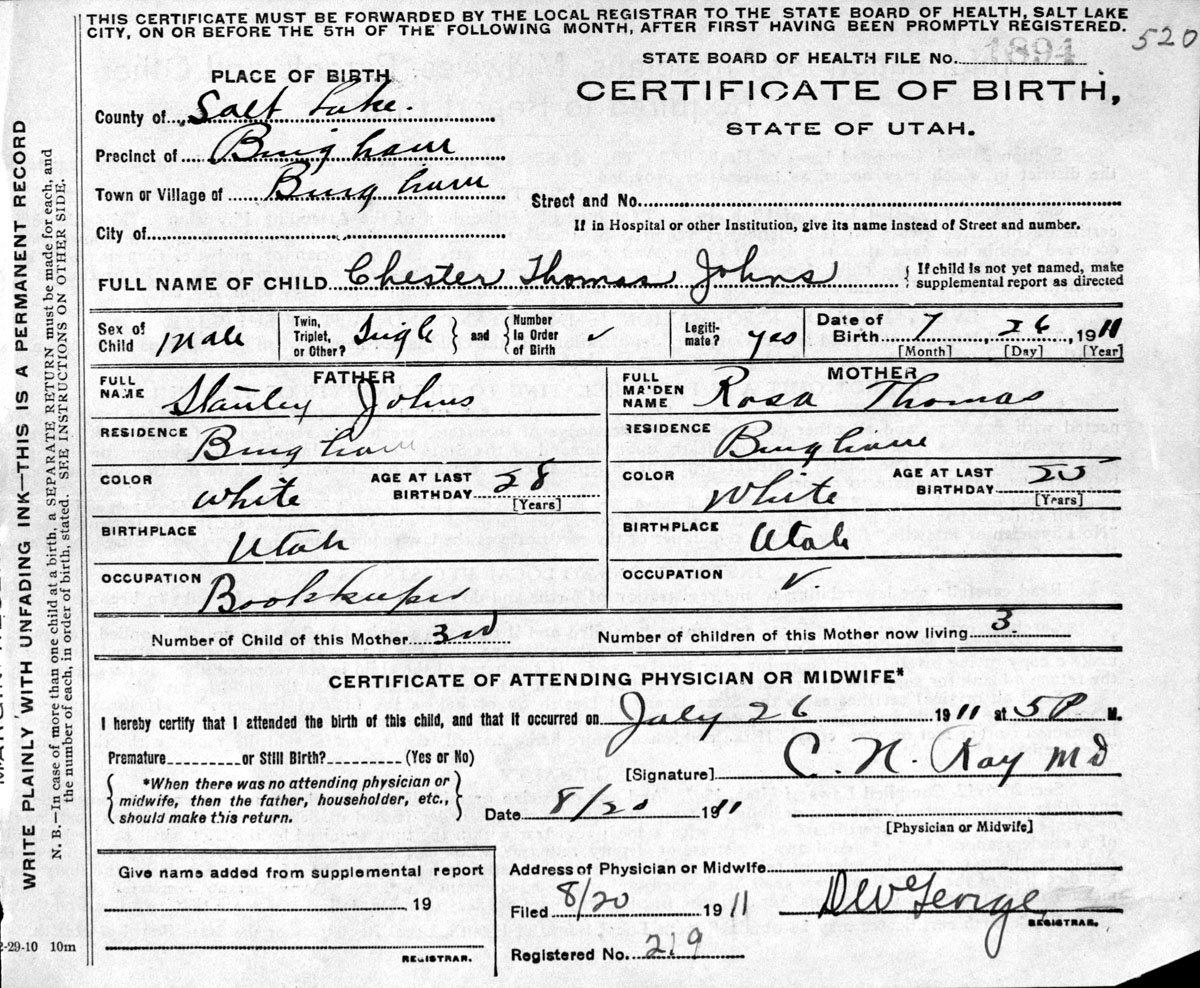 THIS CERTIFICATE MUST BE FORWARDED BY THE LOCAL REGISTRAR TO THE STATE BOARD OF HEALTH, SALT LAKE
CITY, ON OR BEFORE THE 5TH OF THE FOLLOWING MONTH, AFTER FIRST HAVING BEEN PROMPTLY REGISTERED.
520
STATE BOARD OF HEALTH FILE No. 1894
PLACE OF BIRTH
CERTIFICATE OF BIRTH,
STATE OF UTAH.
County of Salt Lake.
Precinct of Bingham
Town or Village of Bingham
Street and No.
City of
If in Hospital or other Institution, give its name instead of Street and number.
FULL NAME OF CHILD Chester Thomas Johns
{ If child is not yet named, make
supplemental report as directed
Sex of Child Male
Twin, Triplet, or Other? Single } and { Number In Order of Birth ✓
Legiti-mate? yes
Date of Birth 7, 26, 1911
[Month] [Day] [Year]
FATHER
MOTHER
FULL NAME Stanley Johns
FULL MAIDEN NAME Rosa Thomas
RESIDENCE Bingham
RESIDENCE Bingham
COLOR White AGE AT LAST BIRTHDAY 28 [Years]
COLOR White AGE AT LAST BIRTHDAY 25 [Years]
BIRTHPLACE Utah
BIRTHPLACE Utah
OCCUPATION Bookkeeper
OCCUPATION ✓.
Number of Child of this Mother 3rd
Number of Children of this Mother now living 3.
CERTIFICATE OF ATTENDING PHYSICIAN OR MIDWIFE*
I hereby certify that I attended the birth of this child, and that it occurred on July 26 1911 at 5 P. M.
Premature or Still Birth? (Yes or No)
[Signature] C. N. Ray MD
{ *When there was no attending physician or
midwife, then the father, householder, etc.,
should make this return. }
Date 8/20 1911
[Physician or Midwife]
Give name added from supplemental report
19
REGISTRAR.
Address of Physician or Midwife
Filed 8/20 1911
REGISTRAR.
Registered No. 219
2-29-10 10m
WRITE PLAINLY WITH UNFADING INK—THIS IS A PERMANENT RECORD
N. B.—In case of more than one child at a birth, a SEPARATE RETURN must be made for each, and
the number of each, in order of birth, stated. SEE INSTRUCTIONS ON OTHER SIDE.